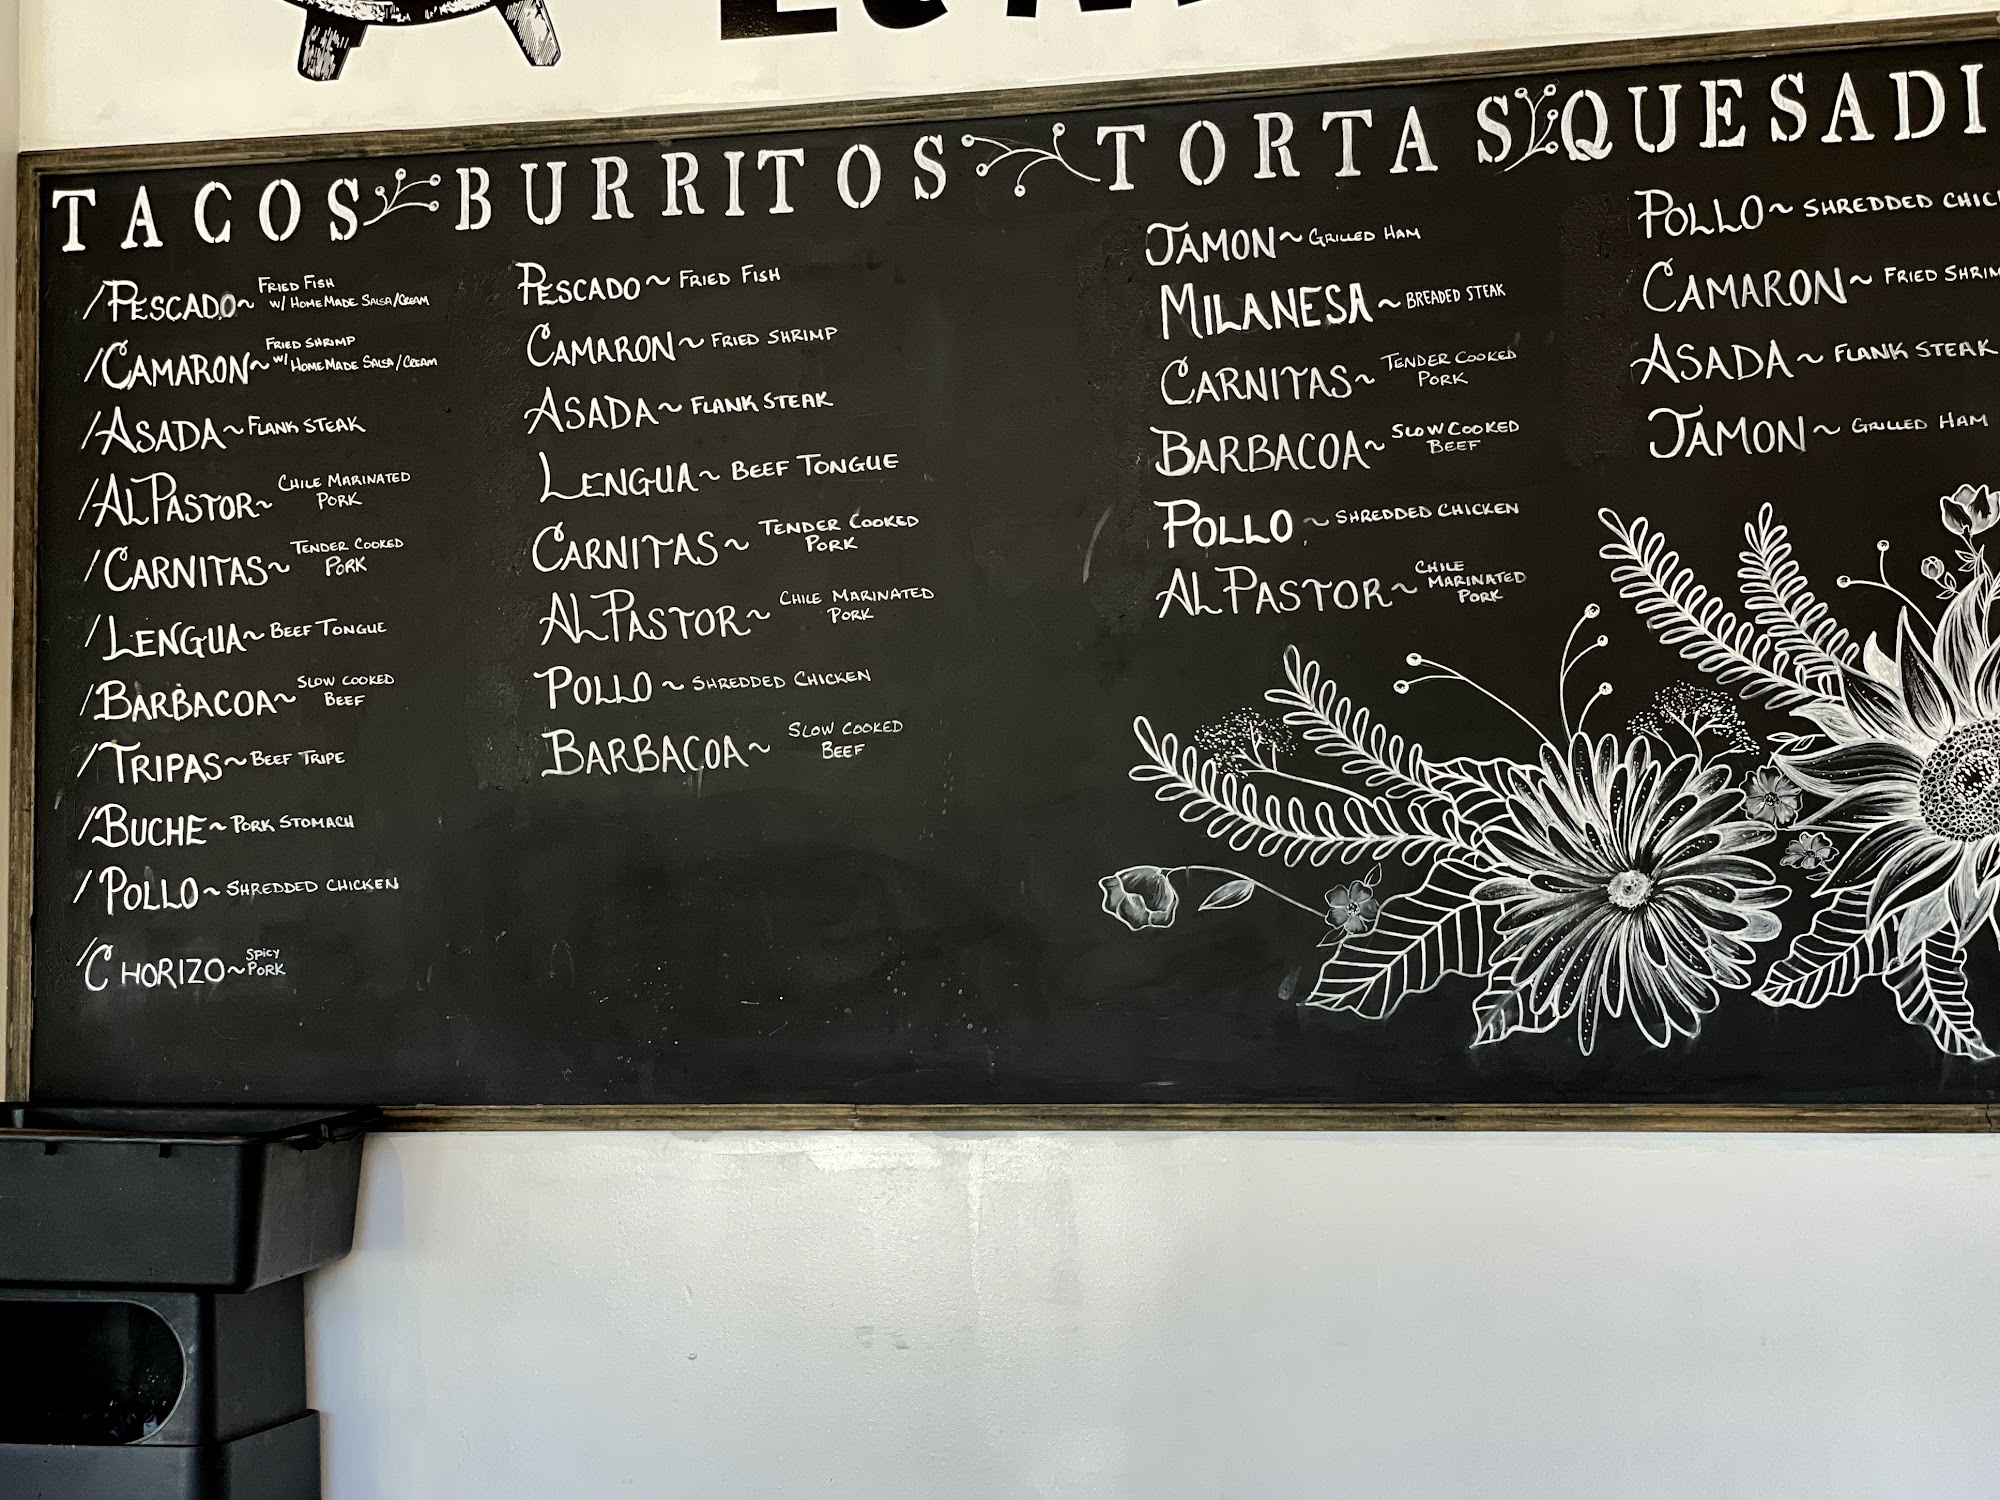 TACOS
/PESCADO~ FRIED FISH
W/ HOMEMADE SALSA/CREAM
/CAMARON~ FRIED SHRIMP
W/ HOMEMADE SALSA/CREAM
/ASADA~FLANK STEAK
/AL PASTOR~ CHILE MARINATED
PORK
/CARNITAS~ TENDER COOKED
PORK
/LENGUA~BEEF TONGUE
/BARBACOA~ SLOW COOKED
BEEF
/TRIPAS~BEEF TRIPE
/BUCHE~PORK STOMACH
/POLLO~SHREDDED CHICKEN
/CHORIZO~SPICY
PORK
BURRITOS
PESCADO~FRIED FISH
CAMARON~FRIED SHRIMP
ASADA~FLANK STEAK
LENGUA~BEEF TONGUE
CARNITAS~ TENDER COOKED
PORK
AL PASTOR~ CHILE MARINATED
PORK
POLLO~SHREDDED CHICKEN
BARBACOA~ SLOW COOKED
BEEF
TORTAS
JAMON~GRILLED HAM
MILANESA~BREADED STEAK
CARNITAS~ TENDER COOKED
PORK
BARBACOA~ SLOW COOKED
BEEF
POLLO~SHREDDED CHICKEN
AL PASTOR~ CHILE
MARINATED
PORK
QUESADI
POLLO~SHREDDED CHIC
CAMARON~FRIED SHRIM
ASADA~FLANK STEAK
JAMON~GRILLED HAM